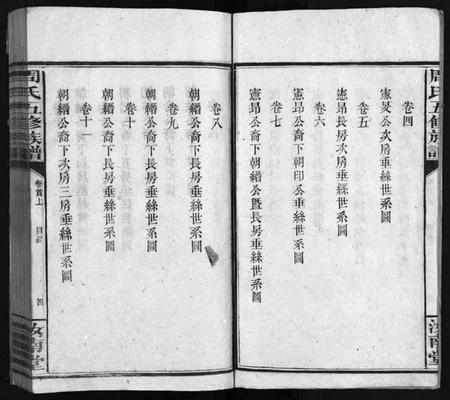 周氏五修族譜
汝南堂
卷四
憲旻公裔下次房垂絲世系圖
卷五
憲昂長房次房垂絲世系圖
卷六
憲昂公裔下朝印公垂絲世系圖
卷七
憲昂公裔下朝縉公暨長房垂絲世系圖
卷八
朝縉公裔下長房垂絲世系圖
卷九
朝縉公裔下次房垂絲世系圖
卷十
朝縉公裔下長房垂絲世系圖
卷十一
朝縉公裔下次房三房垂絲世系圖
周氏五修族譜
卷首上
目錄
四
汝南堂